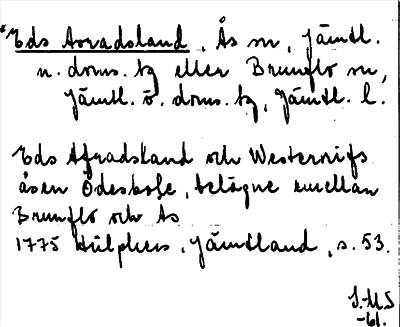 *Eds Avradsland, Ås sn, Jämtl.
n. doms. tg eller Brunflo sn,
Jämtl. ö. doms. tg, Jämtl. l.
Eds Afradsland och Westernifs
åsen Ödesböle, belägne emellan
Brunflo och As
1775 Hülphers, Jämtland, s. 53.
S.M.S
-61.